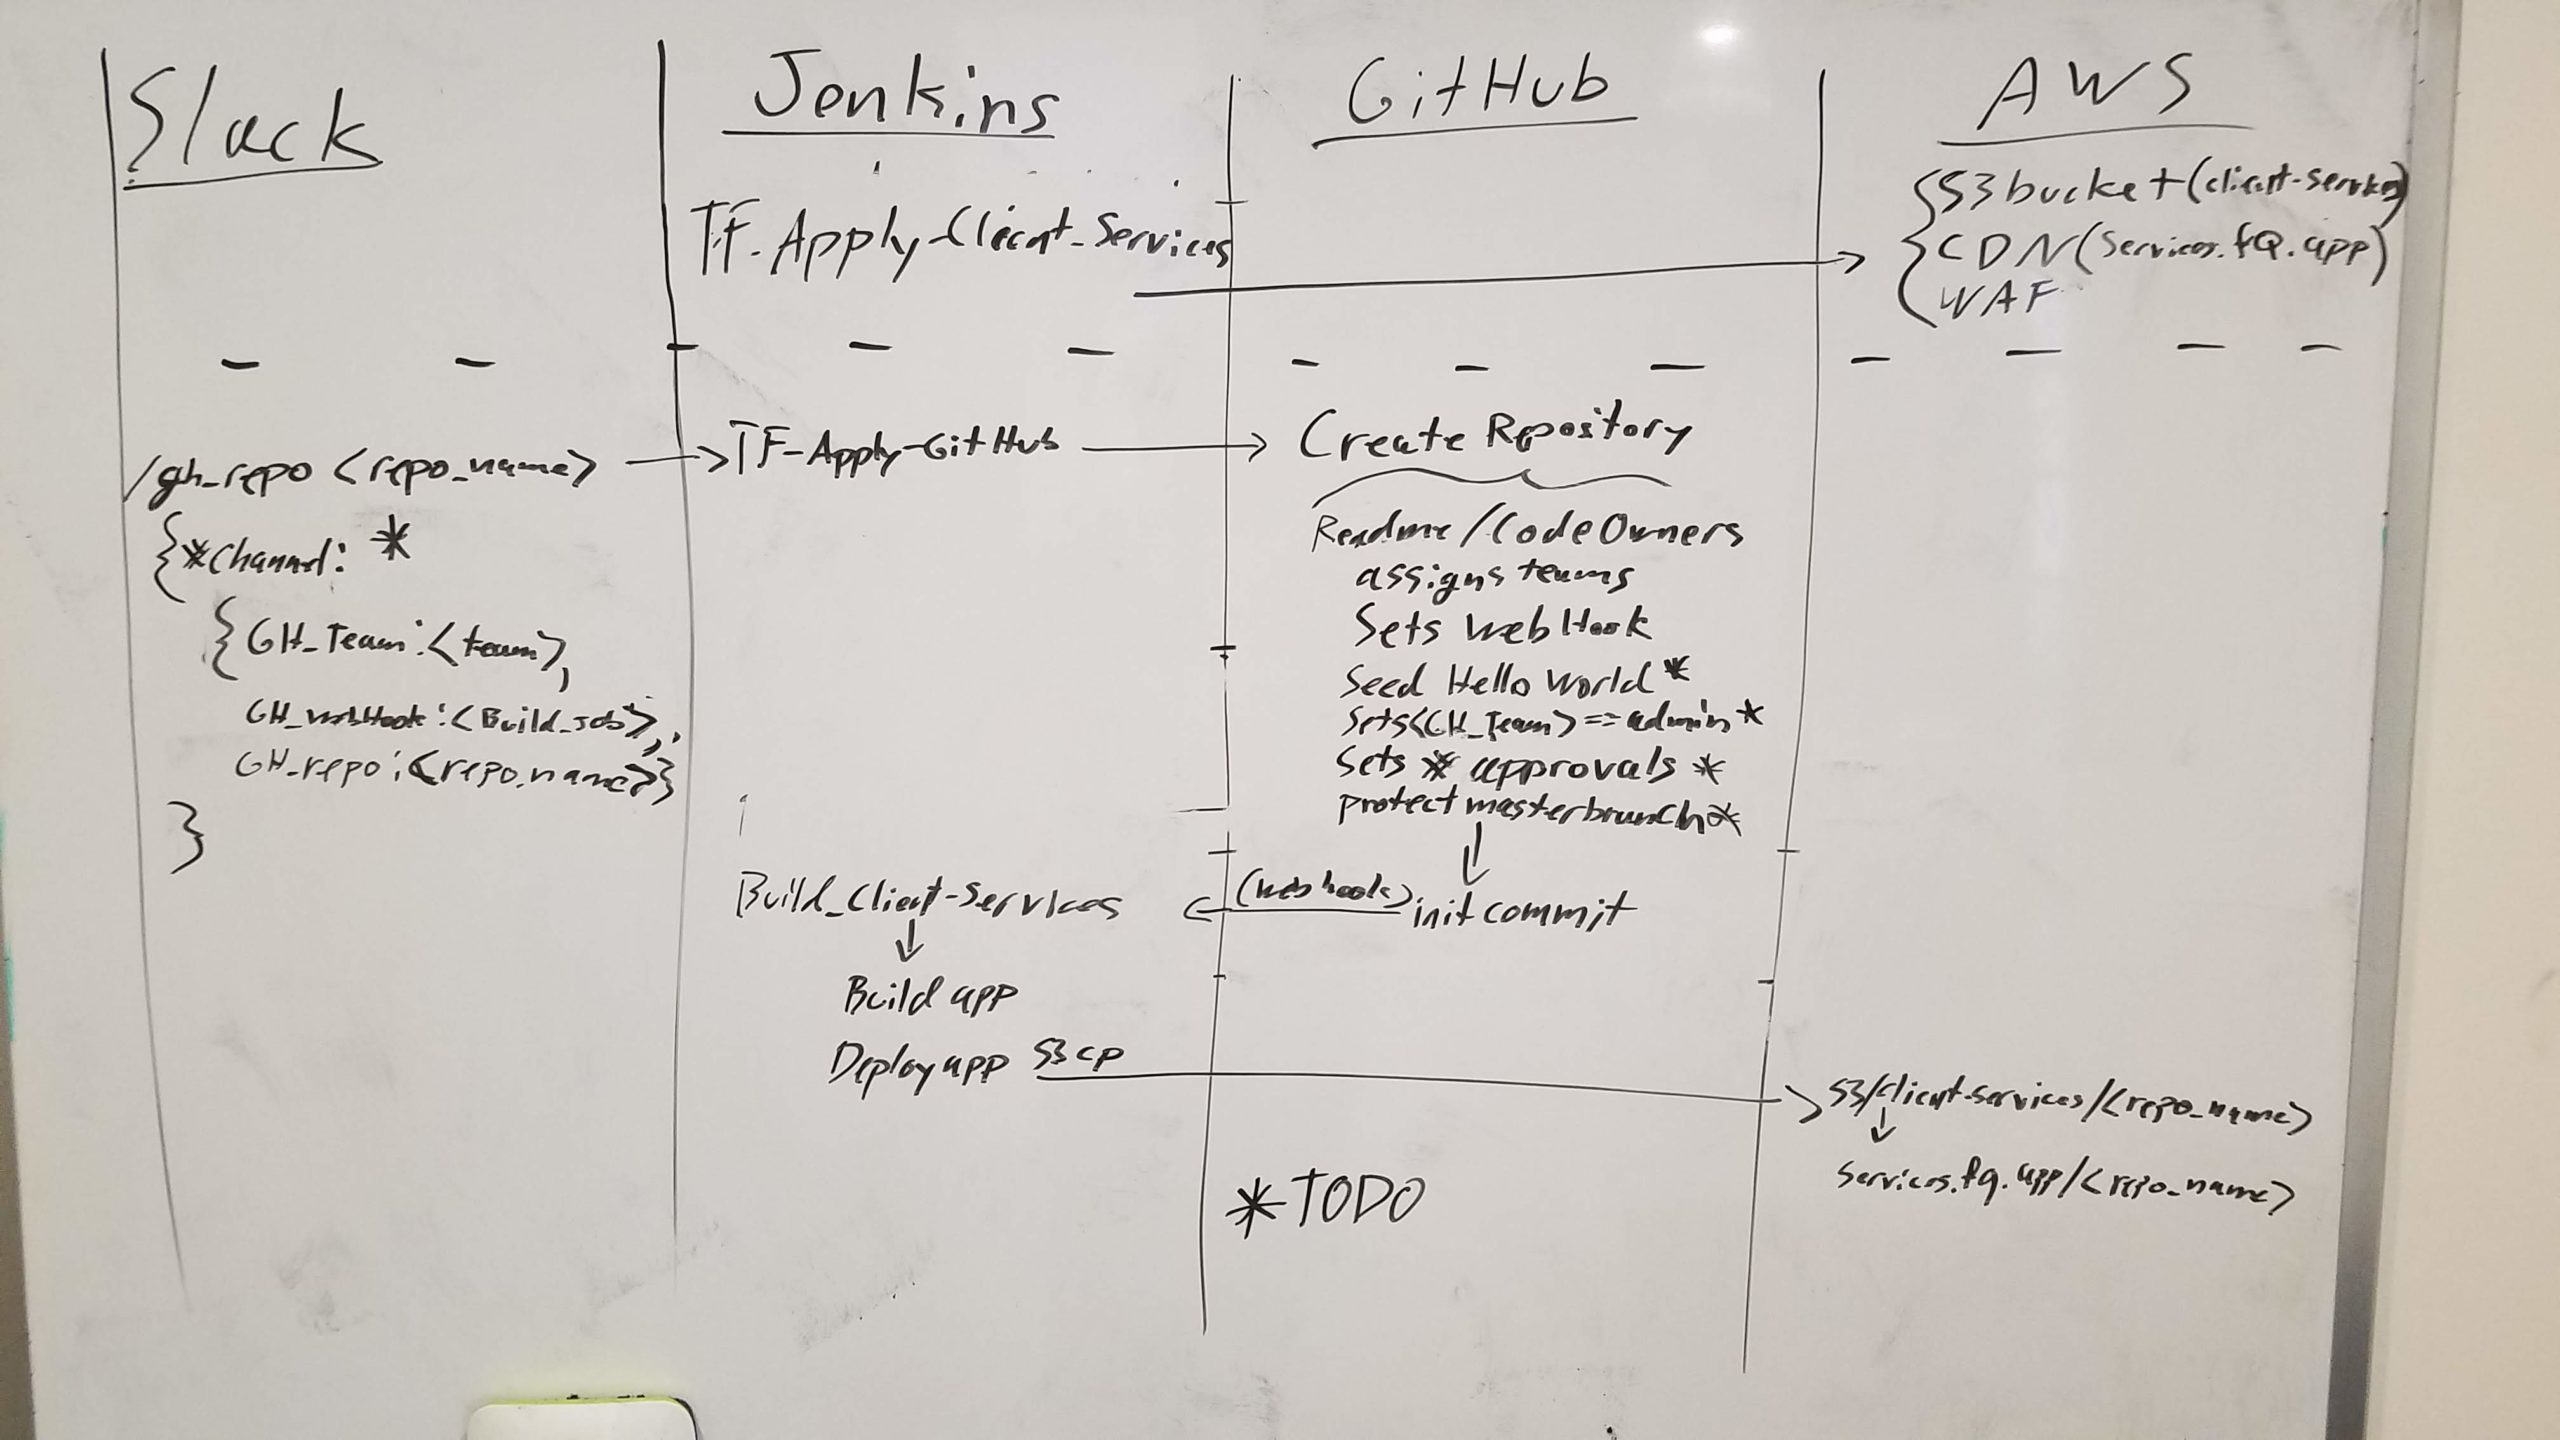 Slack
Jenkins
GitHub
AWS
TF-Apply-Client-Services
{S3 bucket (client-services)
CDN (services.fq.app)
WAF
/gh_repo <repo_name>
TF-Apply-GitHub
Create Repository
{#Channel: *
{GH_Team:<team>,
GH_webHook:<Build_job>,
GH_repo:<repo_name>}
}
Readme/CodeOwners
assigns teams
Sets webHook
Seed Hello World *
Sets <GH_Team> == admin *
Sets # approvals *
protect master branch *
(webhook)
init commit
Build_Client-Services
Build app
Deploy app S3 cp
S3/client-services/<repo_name>
services.fq.app/<repo_name>
* TODO